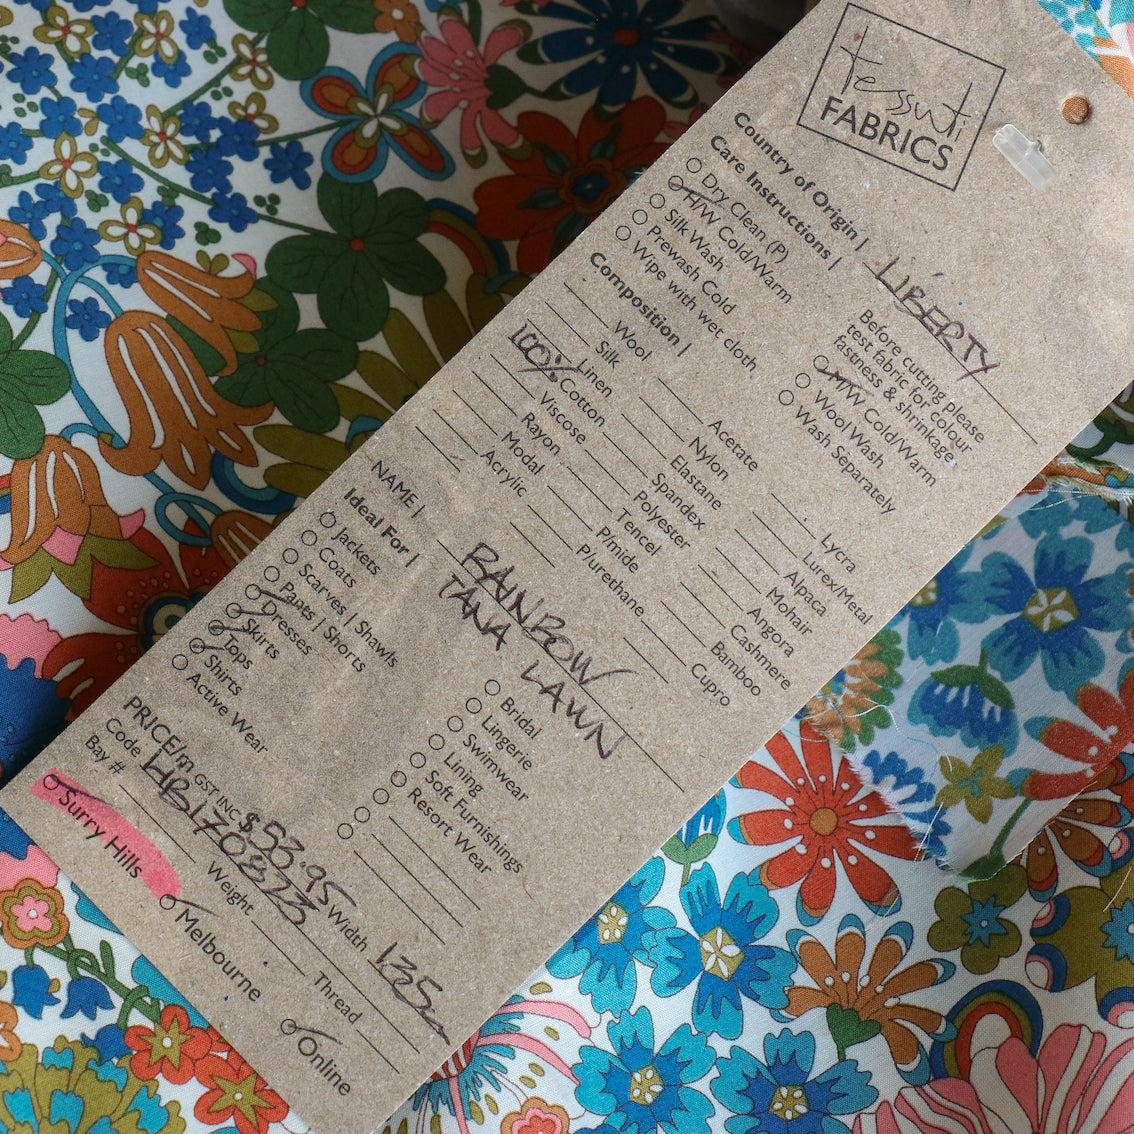 tessuti
FABRICS
Country of Origin | LIBERTY
Care Instructions |
Dry Clean (P)
H/W Cold/Warm
Silk Wash
Prewash Cold
Wipe with wet cloth
Before cutting please
test fabric for colour
fastness & shrinkage
M/W Cold/Warm
Wool Wash
Wash Separately
Composition |
Wool
Silk
Linen
100% Cotton
Viscose
Rayon
Modal
Acrylic
Acetate
Nylon
Elastane
Spandex
Polyester
Tencel
P/mide
P/urethane
Lycra
Lurex/Metal
Alpaca
Mohair
Angora
Cashmere
Bamboo
Cupro
NAME | RAINBOW
TANA LAWN
Ideal For |
Jackets
Coats
Scarves | Shawls
Pants | Shorts
Dresses
Skirts
Tops
Shirts
Active Wear
Bridal
Lingerie
Swimwear
Lining
Soft Furnishings
Resort Wear
PRICE/m GST INC $ 53.95 Width 135
Code HB170823
Bay # Weight Thread
Surry Hills
Melbourne
Online